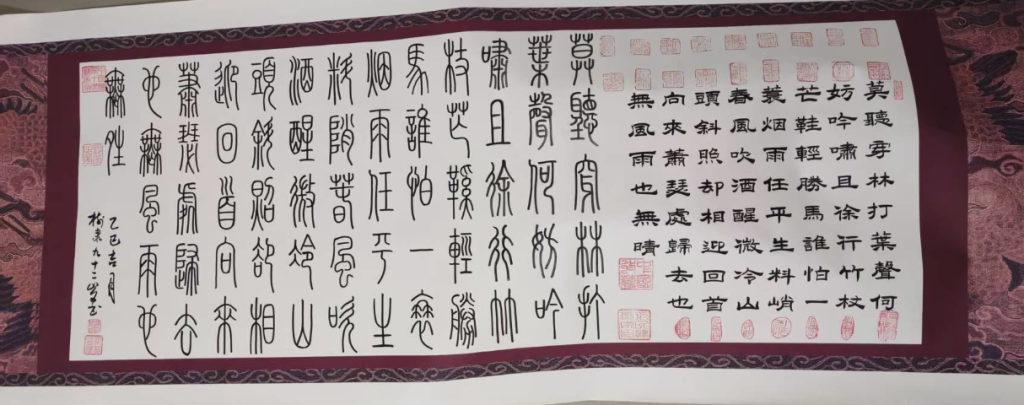 莫聽穿林打葉聲何
妨吟嘯且徐行竹杖
芒鞋輕勝馬誰怕一
蓑烟雨任平生料峭
春風吹酒醒微冷山
頭斜照却相迎回首
向來蕭瑟處歸去也
無風雨也無晴
莫聽穿林打
葉聲何妨吟
嘯且徐行竹
杖芒鞋輕勝
馬誰怕一蓑
烟雨任平生
料峭春風吹
酒醒微冷山
頭斜照卻相
迎回首向來
蕭瑟處歸去
也無風雨也
無晴
乙巳吉月
九十三岁书